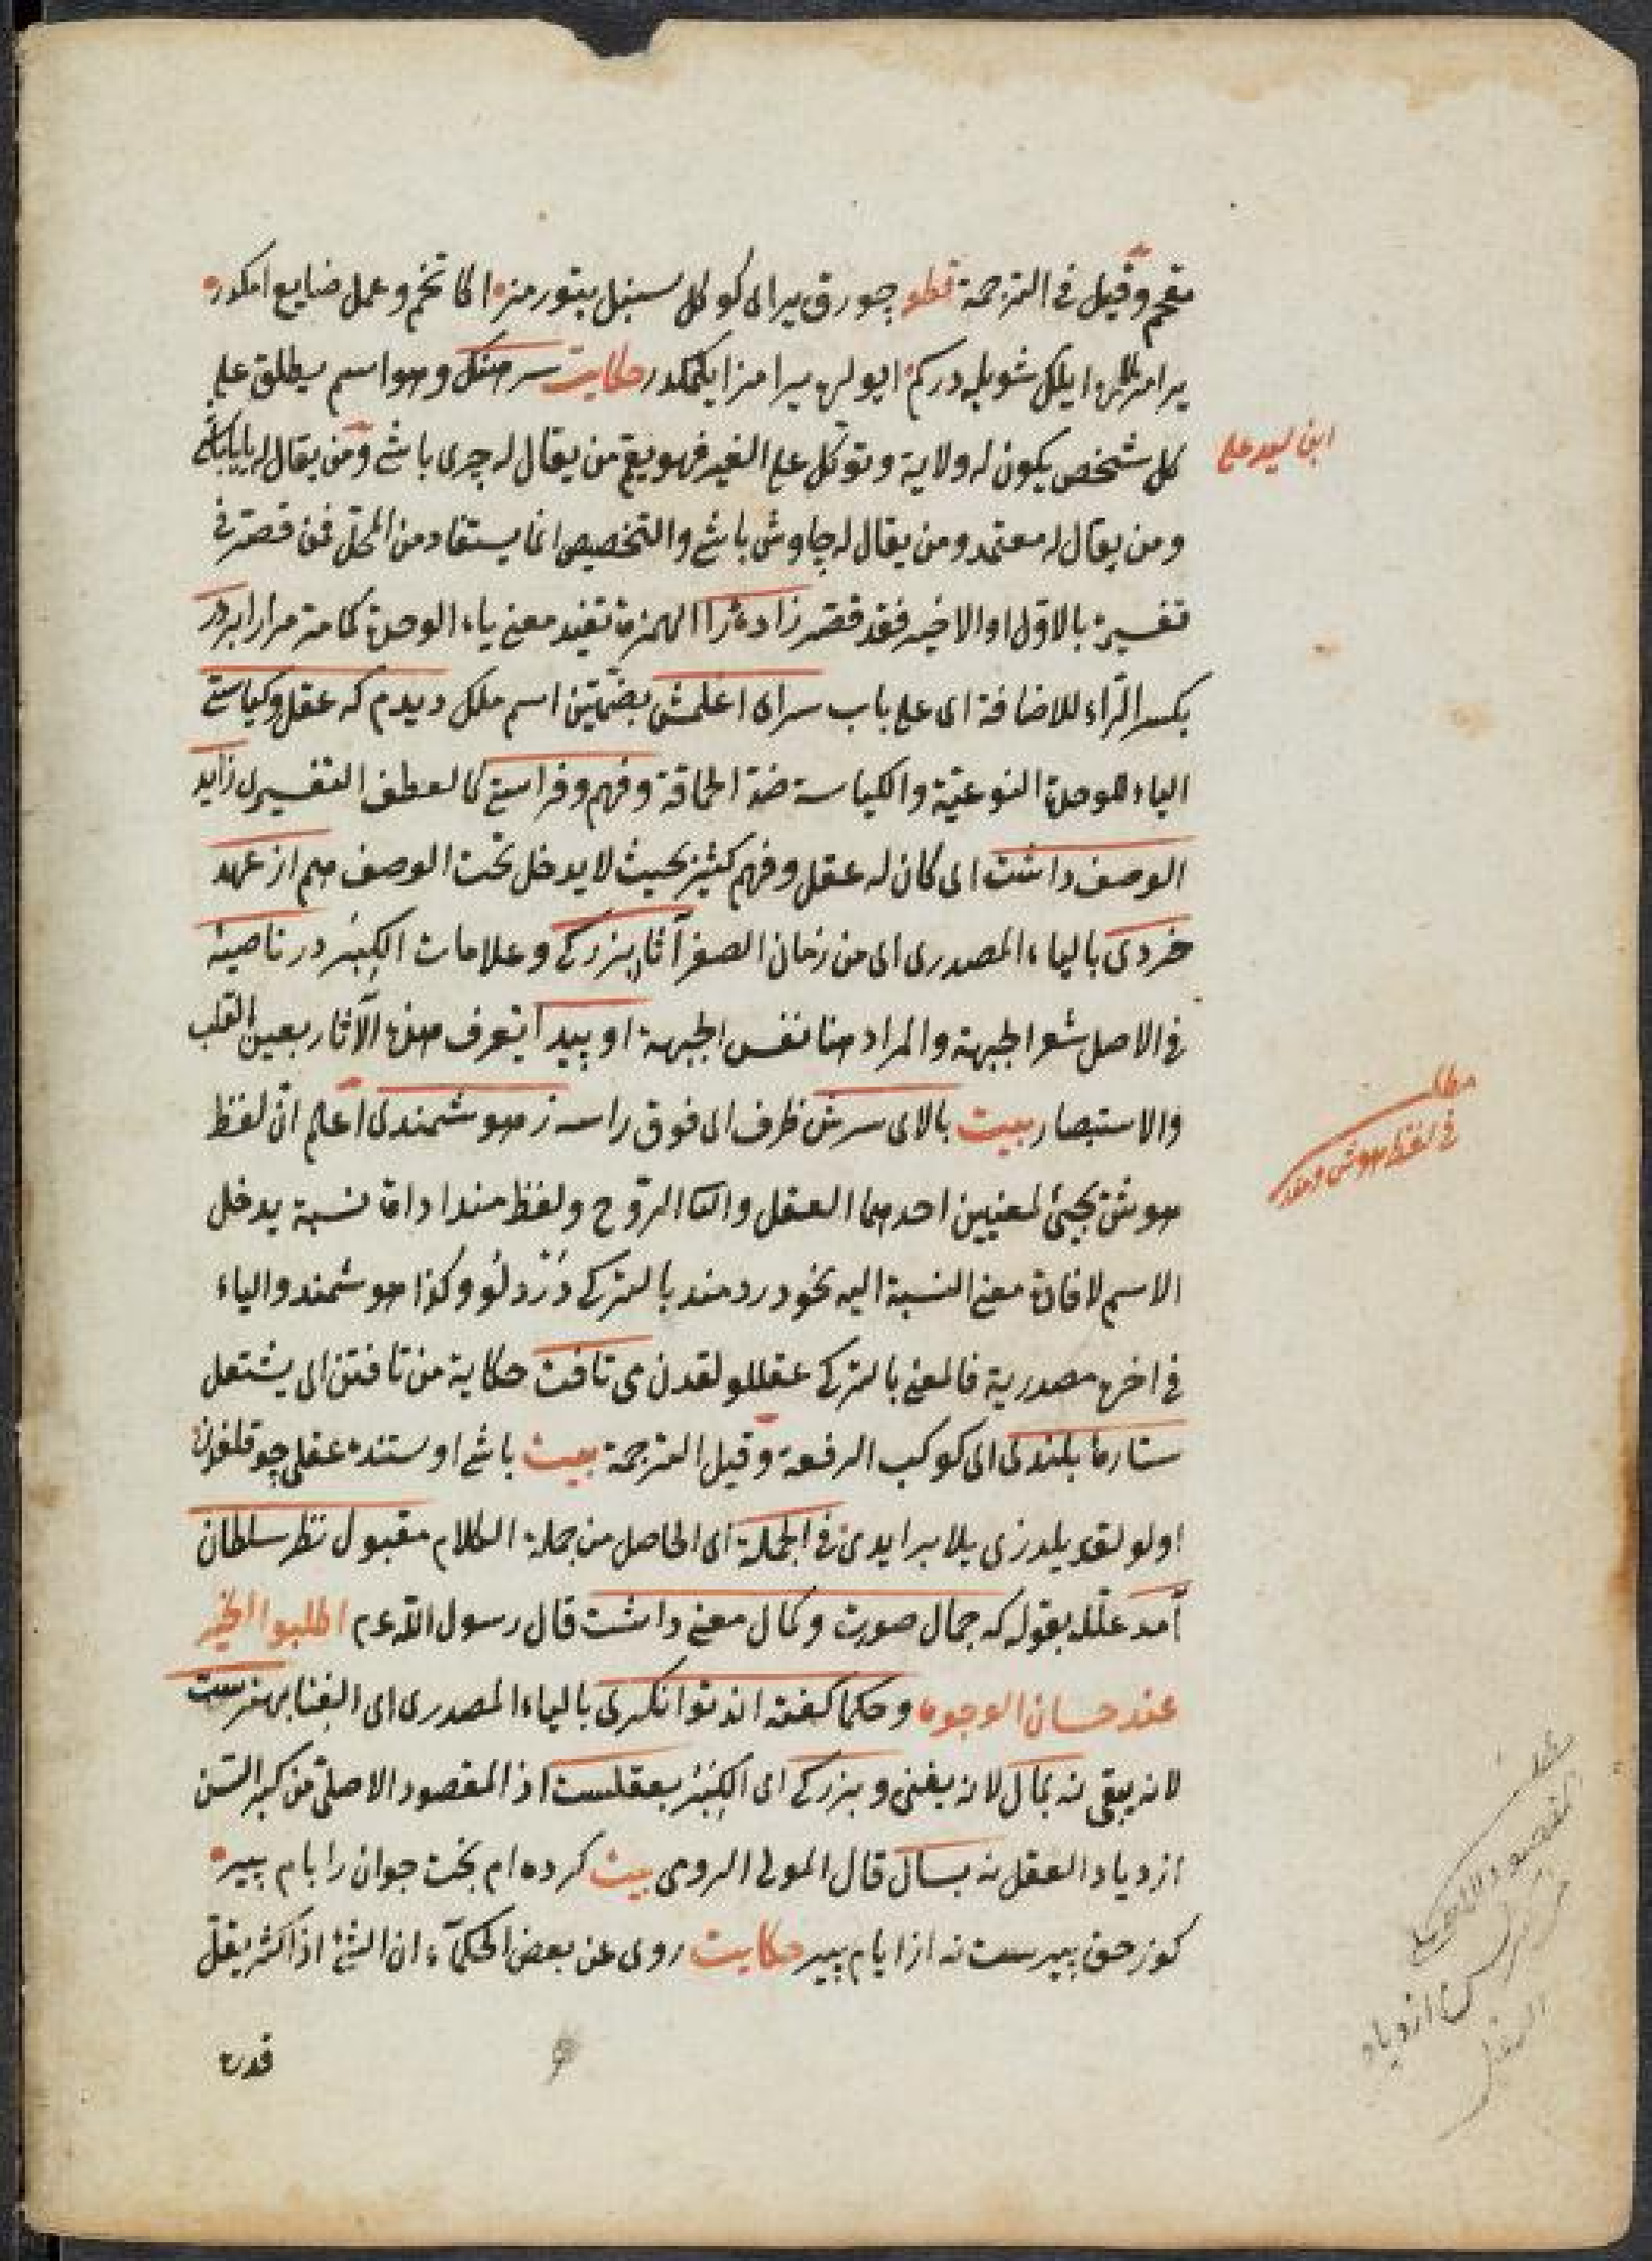 مقحم وقيل فى الترجمة قطعه چورق ير اى كوكل سنبل بتورمز اكا تخم وعمل ضايع امكدر
يرامزلره ايلك شويله دركم ايولره يرامز ايلكمكدر حكايت سرهنك وهو اسم يطلق على
كل شخص يكون له ولاية وتوكل على الغير فهو يعم من يقال له چرى باشى ومن يقال له
ومن يقال له معتمد ومن يقال له چاوش باشى والتخصيص انما يستفاد من المحل فمن قصر فى
تفسيره بالاول او الاخير فقد قصر زاده را الهمزة تفيد معنى ياء الوحدة كما مر مرارا بر در
بكسر الراء للاضافة اى على باب سراى اغلمش بضمتين اسم ملك ديدم كه عقل وكياستى
الياء للوحدة النوعية والكياسة ضد الحماقة وفهم وفراستى كالعطف التفسيرى زايد
الوصف داشت اى كان له عقل وفهم كثير بحيث لا يدخل تحت الوصف هم از عهد
خردى بالياء المصدرى اى من زمان الصغر آثار بزركى وعلامات الكبر در ناصيه
فى الاصل شعر الجبهة والمراد هنا نفس الجبهة او پيدا يتعرف هذه الآثار بعين القلب
والاستبصار بيت بالاى سرش ظرف اى فوق راسه ز هوشمندى اعلم ان لفظ
هوش يجئ لمعنيين احدهما العقل والثانى الروح ولفظ مند اداة نسبة يدخل
الاسم لافادة معنى النسبة اليه نحو دردمند بالتركى دردلو وكذا هوشمند والياء
فى اخره مصدرية فالمعنى بالتركى عقللولقدن مى تافت حكاية من تافتن اى يشتعل
ستاره بلندى اى كوكب الرفعة وقيل الترجمة بيت باشى اوستنده عقلى چوقلغندن
اولولقه يلدزى يلابر ايدى فى الجملة اى الحاصل من جملة الكلام مقبول نظر سلطان
آمد علله بقوله كه جمال صورت وكمال معنى داشت قال رسول الله عم اطلبوا الخير
عند حسان الوجوه وحكما كفته اند توانكرى بالياء المصدرى اى الغنا بهنرست
لانه يبقى نه بمال لانه يفنى وبزركى اى الكبر بعقلست اذ المقصود الاصلى من كبر السن
ازدياد العقل نه بسال قال المولى الرومى بيت كرده ام بخت جوان را نام پير
كو ز حق پيرست نه از ايام پير حكايت روى عن بعض الحكماء ان الشئ اذا كثر يقل
قدره
ابن سيد على
مطلب
فى لفظ هوش ومند
المقصود الاصلى
من كبر السن ازدياد
العقل